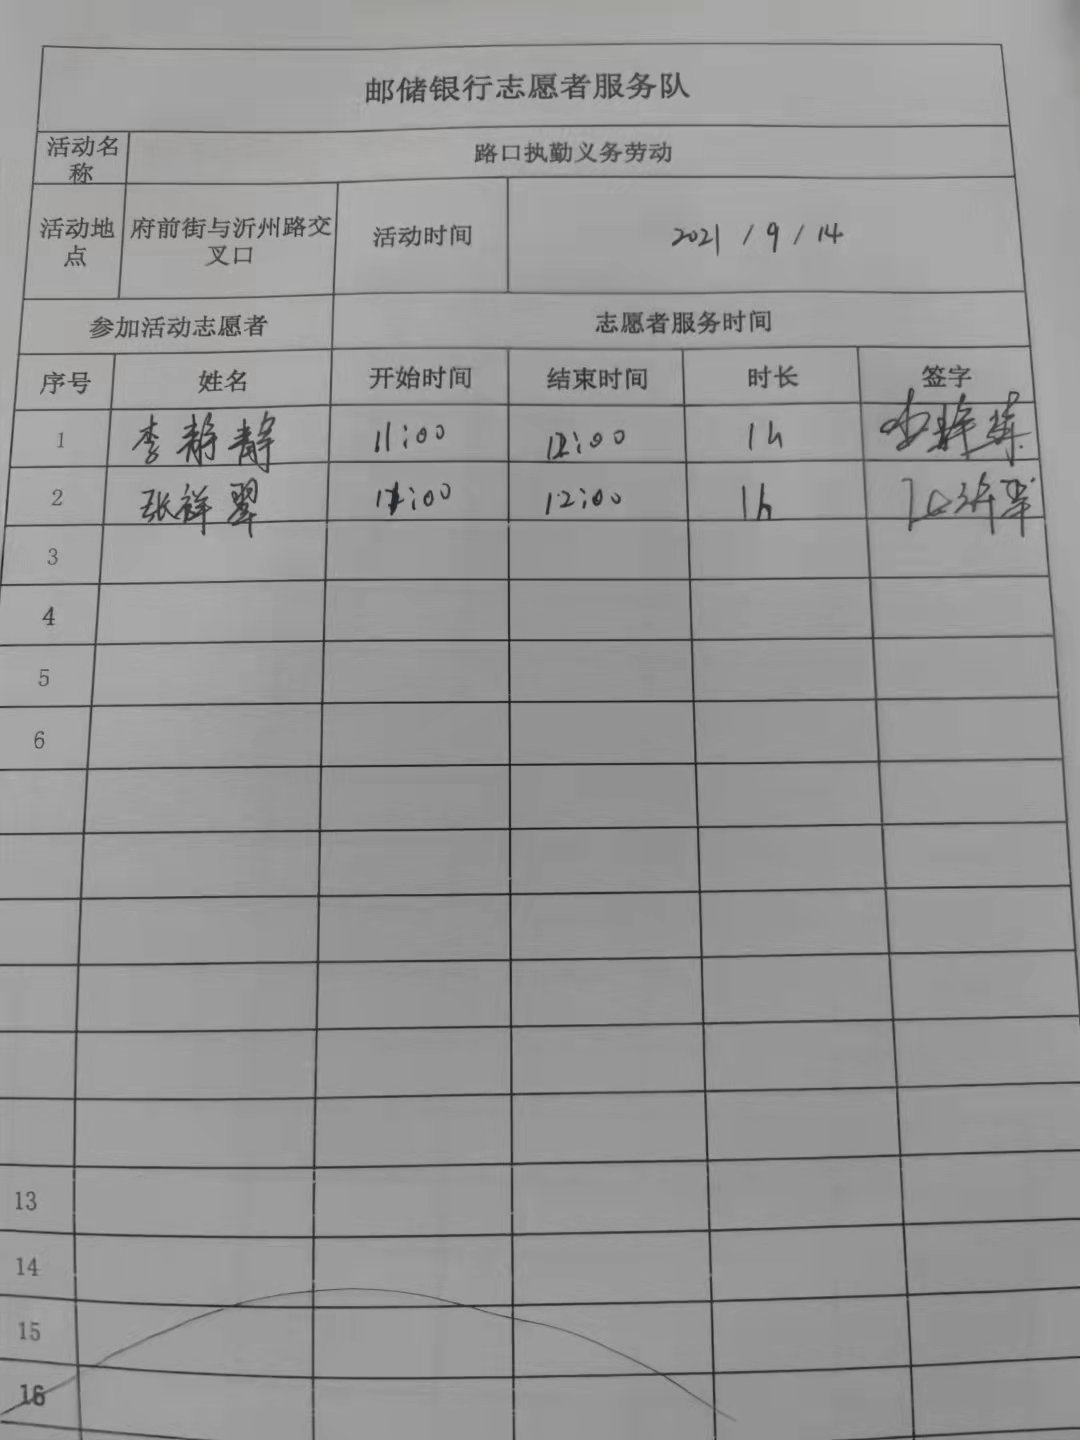 邮储银行志愿者服务队
活动名称 路口执勤义务劳动
活动地点 府前街与沂州路交叉口 活动时间 2021/9/14
参加活动志愿者 志愿者服务时间
序号 姓名 开始时间 结束时间 时长 签字
1 李静静 11:00 12:00 1h
2 张祥翠 11:00 12:00 1h
3
4
5
6
13
14
15
16